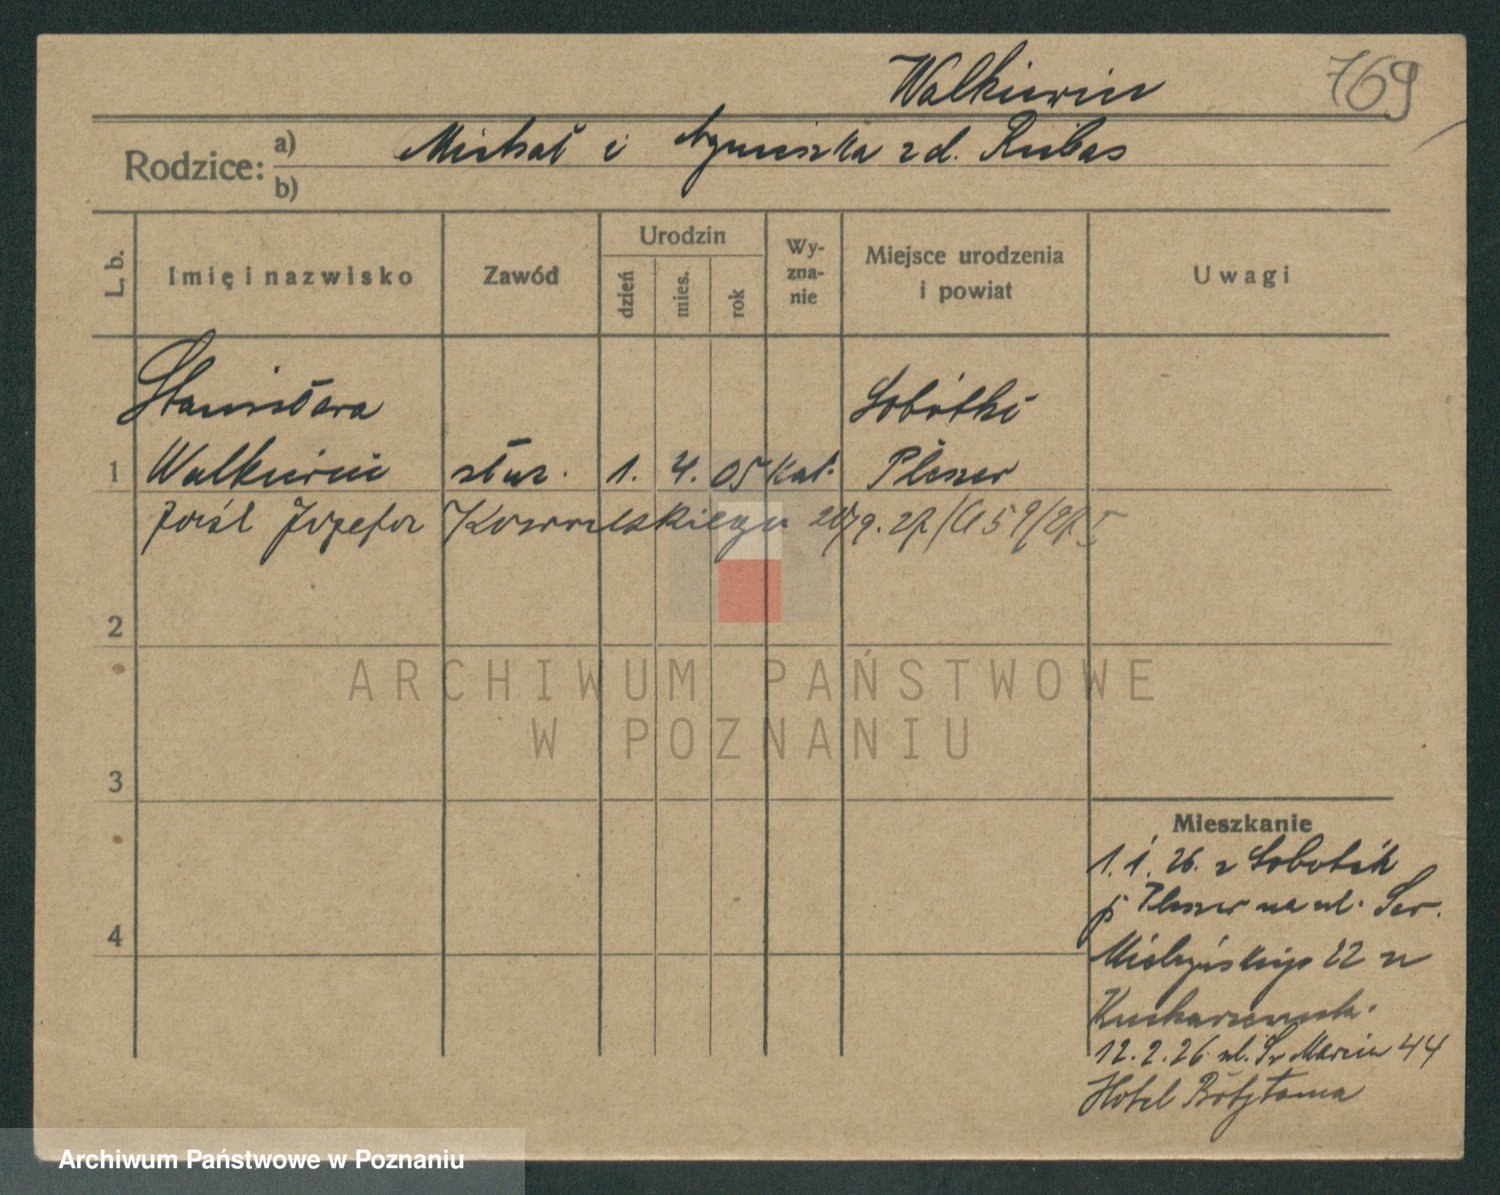 Walkiewicz 769
Rodzice: a) Michał i Agnieszka z d. Rubas
b)
L. b. Imię i nazwisko Zawód Urodzin dzień mies. rok Wy-zna-nie Miejsce urodzenia i powiat Uwagi
Stanisława Sobótki
1 Walkiewicz służ. 1. 4. 05 kat. Pleszew
Józefa 59
2
ARCHIWUM PAŃSTWOWE
W POZNANIU
3
Mieszkanie
1. 1. 26. z Sobotek
p. Pleszew na ul. Sew.
4
Mielżyńskiego 22 u
12. 2. 26. ul. Św Marcin 44
Hotel
Archiwum Państwowe w Poznaniu